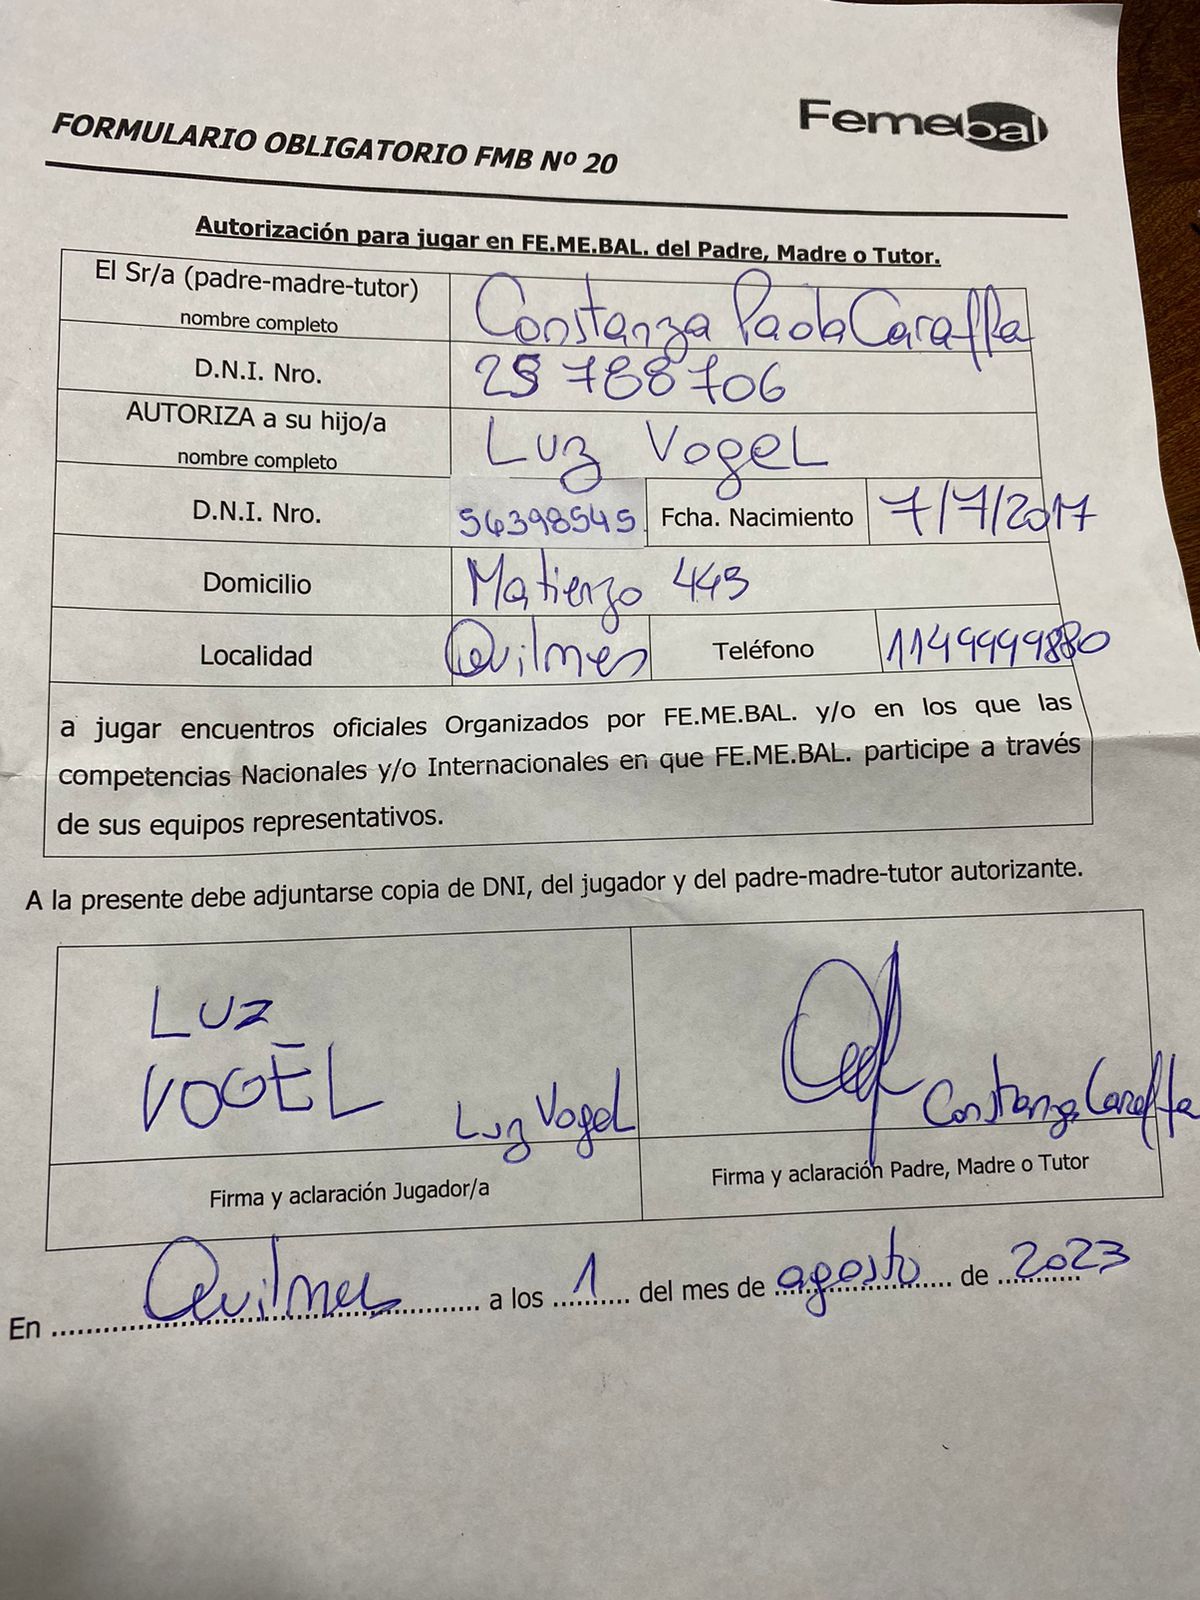 Femebal
FORMULARIO OBLIGATORIO FMB Nº 20
Autorización para jugar en FE.ME.BAL. del Padre, Madre o Tutor.
El Sr/a (padre-madre-tutor) Constanza Paola Caraffa
nombre completo
D.N.I. Nro. 25 788 706
AUTORIZA a su hijo/a Luz Vogel
nombre completo
D.N.I. Nro. 56398545 Fcha. Nacimiento 7/7/2017
Domicilio Matienzo 445
Localidad Quilmes Teléfono 1149999880
a jugar encuentros oficiales Organizados por FE.ME.BAL. y/o en los que las
competencias Nacionales y/o Internacionales en que FE.ME.BAL. participe a través
de sus equipos representativos.
A la presente debe adjuntarse copia de DNI, del jugador y del padre-madre-tutor autorizante.
LUZ
VOGEL
Luz Vogel Constanza Caraffa
Firma y aclaración Jugador/a Firma y aclaración Padre, Madre o Tutor
En Quilmes a los 1 del mes de agosto de 2023